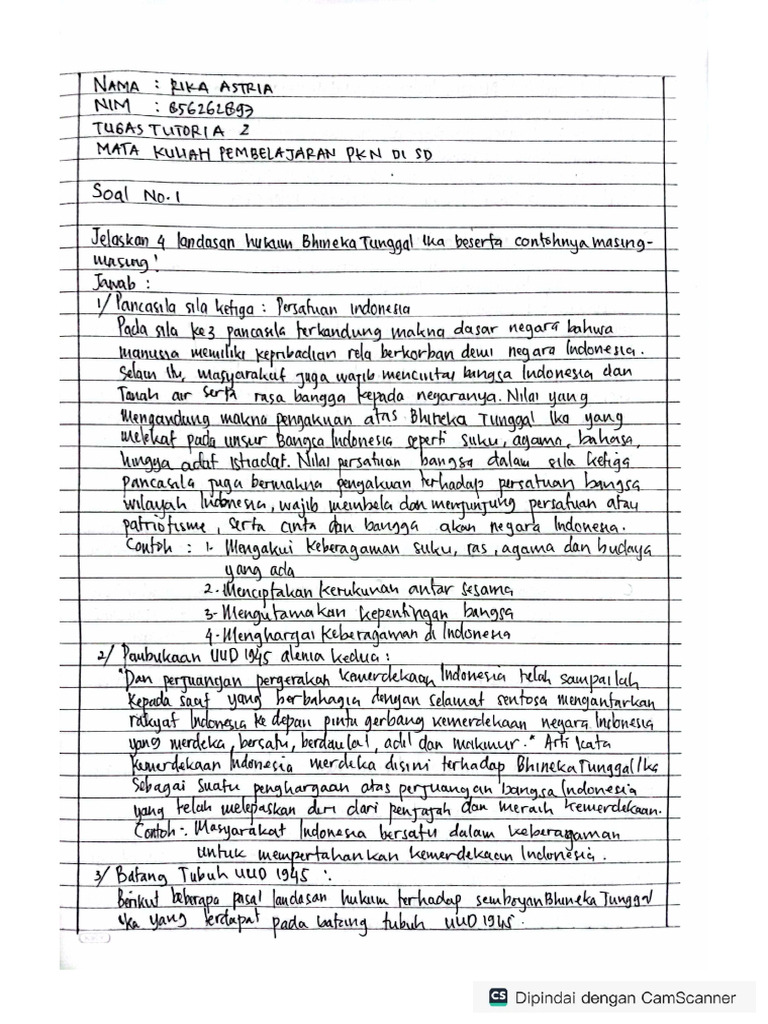 NAMA : RIKA ASTRIA
NIM : 856262893
TUGAS TUTORIA 2
MATA KULIAH PEMBELAJARAN PKN DI SD
Soal No. 1
Jelaskan 4 landasan hukum Bhineka Tunggal Ika beserta contohnya masing-
masing!
Jawab :
1/ Pancasila sila ketiga : Persatuan Indonesia
Pada sila ke3 pancasila terkandung makna dasar negara bahwa
manusia memiliki kepribadian rela berkorban demi negara Indonesia.
Selain itu, masyarakat juga wajib mencintai bangsa Indonesia dan
Tanah air serta rasa bangga kepada negaranya. Nilai yang
Mengandung makna pengakuan atas Bhineka Tunggal Ika yang
melekat pada unsur Bangsa Indonesia seperti suku, agama, bahasa,
hingga adat istiadat. Nilai persatuan bangsa dalam sila ketiga
pancasila juga bermakna pengakuan terhadap persatuan bangsa
wilayah Indonesia, wajib membela dan menjunjung persatuan atau
patriotisme, serta cinta dan bangga akan negara Indonesia.
Contoh : 1. Mengakui keberagaman suku, ras, agama dan budaya
yang ada
2. Menciptakan kerukunan antar sesama
3- Mengutamakan kepentingan bangsa
4- Menghargai keberagaman di Indonesia
2/ Paubukaan UUD 1945 alenia kedua :
"Dan perjuangan pergerakan kemerdekaan Indonesia telah sampailah
kepada saat yang berbahagia dengan selamat sentosa mengantarkan
rakyat Indonesia ke depan pintu gerbang kemerdekaan negara Indonesia
yang merdeka, bersatu, berdaulat, adil dan makmur." Arti kata
kemerdekaan Indonesia merdeka disini terhadap Bhineka Tunggal Ika
Sebagai suatu penghargaan atas perjuangan bangsa Indonesia
yang telah melepaskan diri dari penjajah dan meraih kemerdekaan.
Contoh :. Masyarakat Indonesia bersatu dalam keberagaman
untuk mempertahankan kemerdekaan Indonesia.
3/ Batang Tubuh UUD 1945 :
Berikut beberapa pasal landasan hukum terhadap semboyan Bhineka Tunggal
Ika yang terdapat pada batang tubuh UUD 1945.
CS Dipindai dengan CamScanner